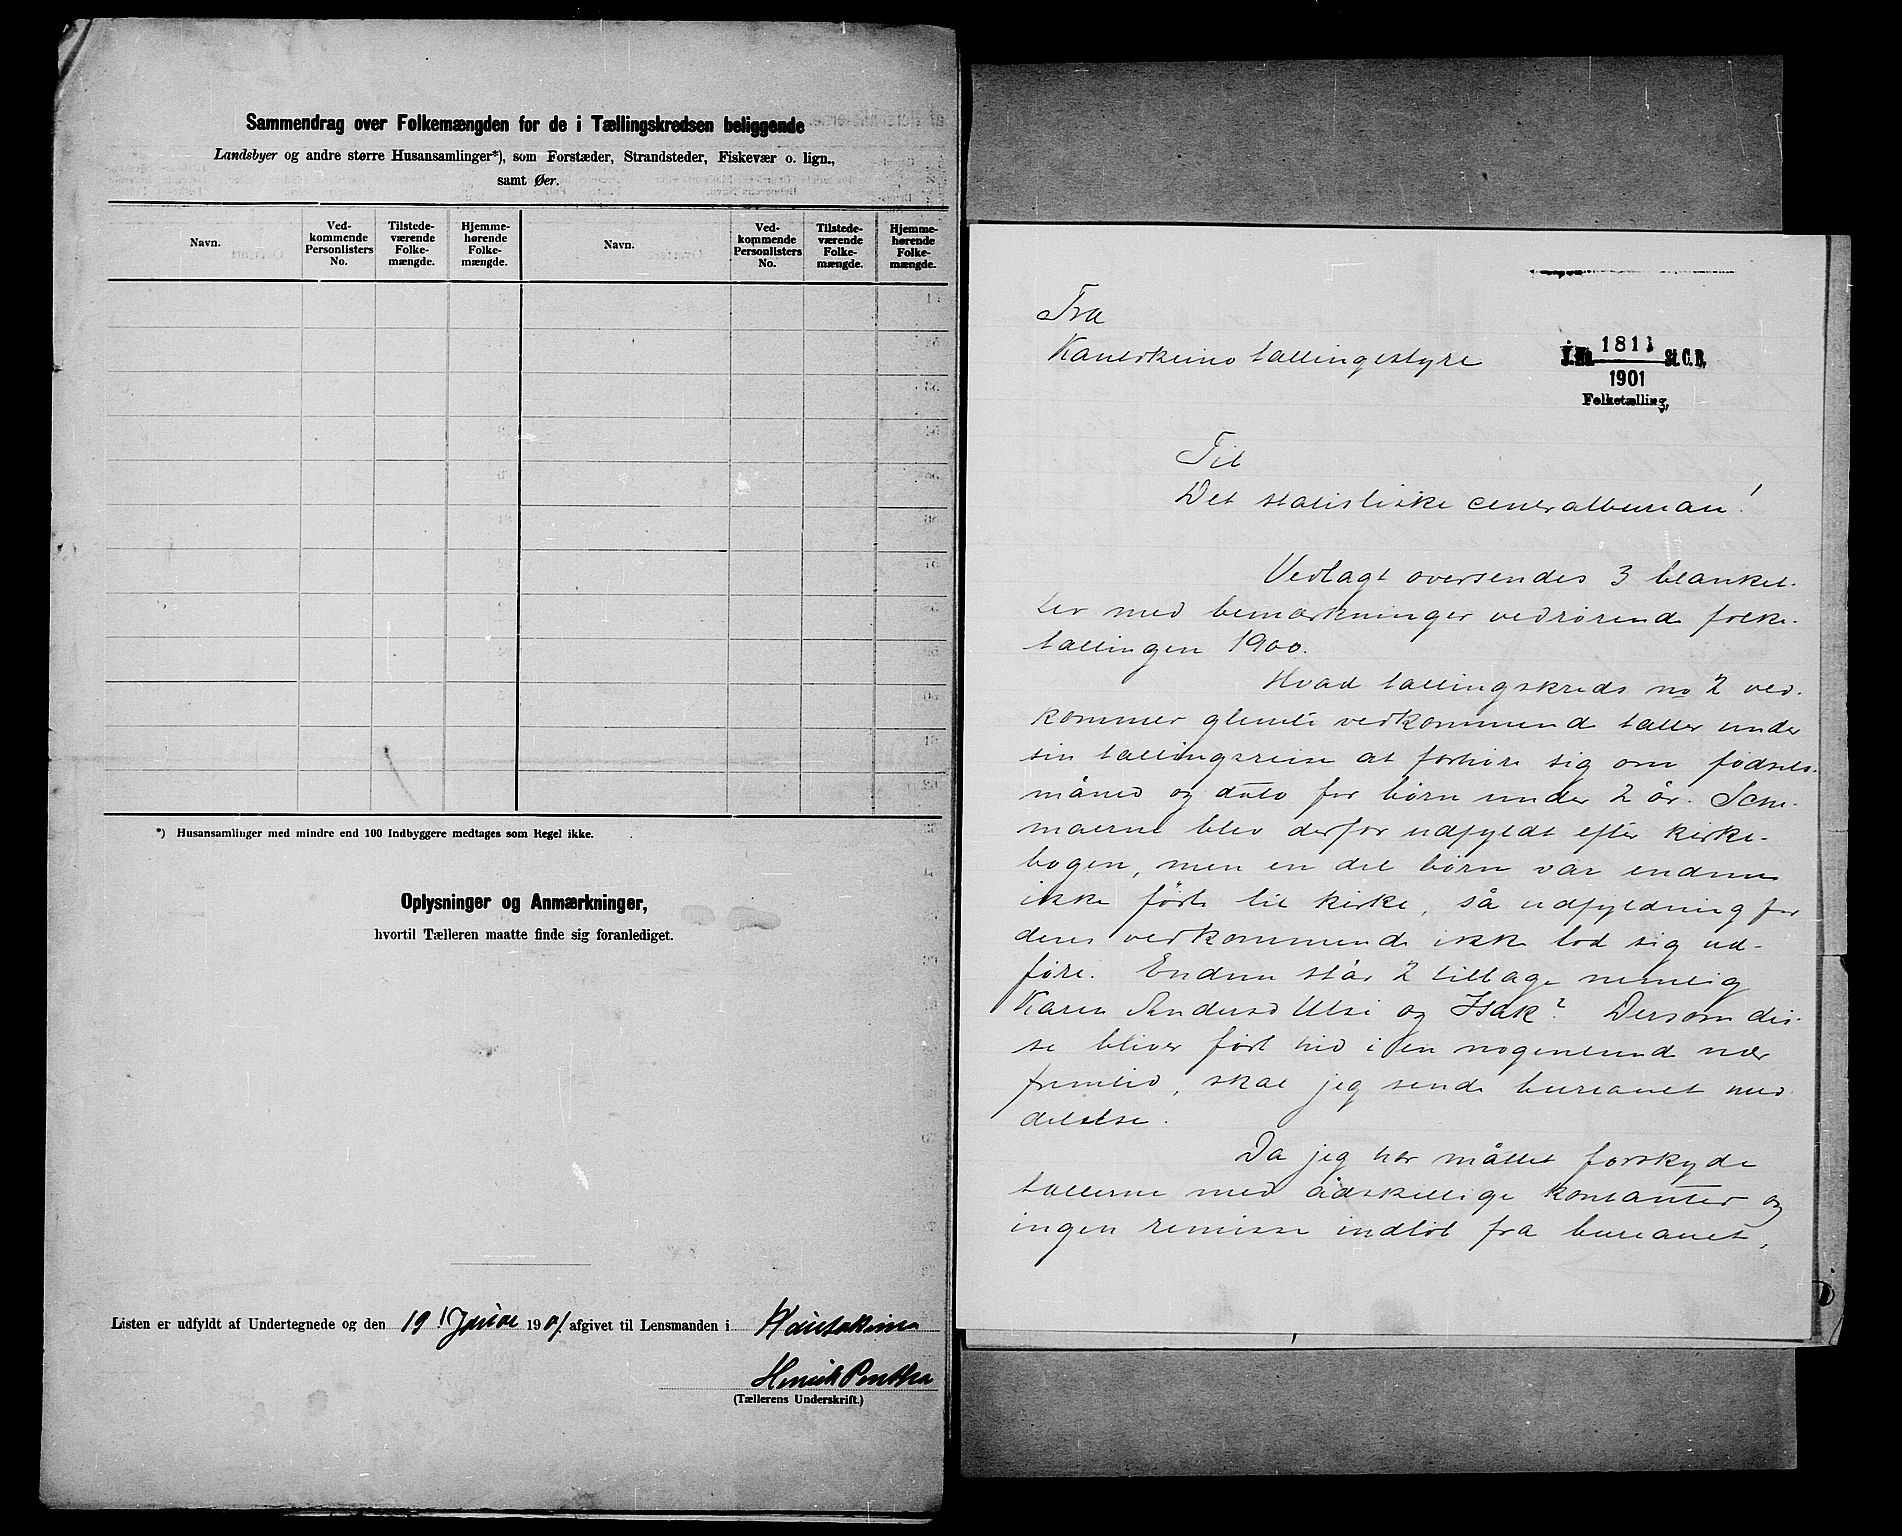 Sammendrag over Folkemængden for de i Tællingskredsen beliggende
Landsbyer og andre større Husansamlinger*), som Forstæder, Strandsteder, Fiskevær o. lign.,
samt Øer.
Navn.
Ved-
kommende
Personlisters
No.
Tilstede-
værende
Folke-
mængde.
Hjemme-
hørende
Folke-
mængde.
Navn.
Ved-
kommende
Personlisters
No.
Tilstede-
værende
Folke-
mængde.
Hjemme-
hørende
Folke-
mængde.
*) Husansamlinger med mindre end 100 Indbyggere medtages som Regel ikke.
Oplysninger og Anmærkninger,
hvortil Tælleren maatte finde sig foranlediget.
Listen er udfyldt af Undertegnede og den 19 Januar 1901 afgivet til Lensmanden i Koutokeino
Henrik
(Tællerens Underskrift.)
Fra
Kautokeino tællingsstyre
J. No. 1811 St. C. B.
1901
Folketælling,
Til
Det statistiske centralbureau!
Vedlagt oversendes 3 blanket-
ter med bemærkninger vedrørende folke-
tællingen 1900.
Hvad tællingskreds no 2 ved-
kommer glemte vedkommende tæller under
sin tællingsreise at forhøre sig om fødsels-
måned og dato for børn under 2 år. Sche-
maerne blev derfor udfyldt efter kirke-
bogen, men en del børn var endnu
ikke ført til kirke, så udfyldning for
deres vedkommende ikke lod sig ud-
føre. Endnu står 2 tilbage nemlig
Karen Andersd Utsi og Isak? Dersom dis-
se bliver ført hid i en nogenlunde nær
fremtid, skal jeg sende bureauet med
delelse.
Da jeg har måttet forskyde
tællerne med adskillige kontanter og
ingen remisse indløb fra bureauet,